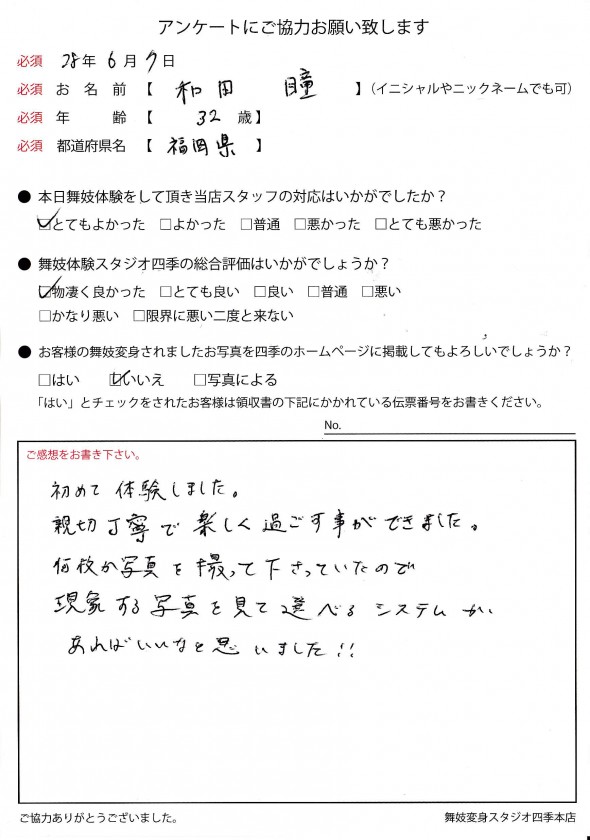 アンケートにご協力お願い致します
必須 28年 6月 7日
必須 お名前【 和田 瞳 】(イニシャルやニックネームでも可)
必須 年齢【 32 歳】
必須 都道府県名【 福岡県 】
● 本日舞妓体験をして頂き当店スタッフの対応はいかがでしたか?
☑とてもよかった □よかった □普通 □悪かった □とても悪かった
● 舞妓体験スタジオ四季の総合評価はいかがでしょうか?
☑物凄く良かった □とても良い □良い □普通 □悪い
□かなり悪い □限界に悪い二度と来ない
● お客様の舞妓変身されましたお写真を四季のホームページに掲載してもよろしいでしょうか?
□はい ☑いいえ □写真による
「はい」とチェックをされたお客様は領収書の下記にかかれている伝票番号をお書きください。
No.
ご感想をお書き下さい。
初めて体験しました。
親切丁寧で楽しく過ごす事ができました。
何枚か写真を撮って下さっていたので
現象する写真を見て選べるシステムが、
あればいいなと思いました!!
ご協力ありがとうございました。
舞妓変身スタジオ四季本店